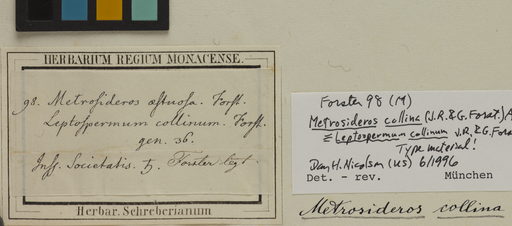 HERBARIUM REGIUM MONACENSE.
98. Metrosideros æstuosa. Forst.
Leptospermum collinum. Forst.
gen. 36.
Ins. Societatis. ♄. Forster
Herbar. Schreberianum
Forster 98 (M)
Metrosideros collina (J.R. & G. Forst.) A
≡ Leptospermum collinum J.R. & G. Forst
Type material!
Dan H. Nicolson (US) 6/1996
Det. - rev. München
Metrosideros collina